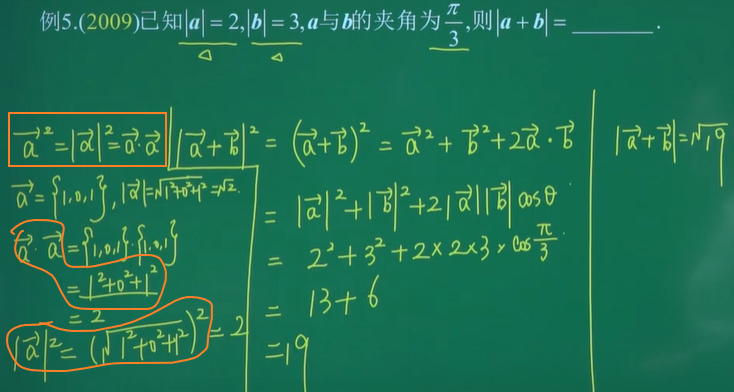 例5.(2009)已知|a|=2,|b|=3,a与b的夹角为π/3,则|a+b|=________.
a⃗²=|a⃗|²=a⃗·a⃗
a⃗={1,0,1},|a⃗|=√1²+0²+1²=√2.
a⃗·a⃗={1,0,1}·{1,0,1}
=1²+0²+1²
=2
|a⃗|²=(√1²+0²+1²)²=2
|a⃗+b⃗|²=(a⃗+b⃗)²=a⃗²+b⃗²+2a⃗·b⃗
=|a⃗|²+|b⃗|²+2|a⃗||b⃗|cosθ
=2²+3²+2×2×3×cosπ/3.
=13+6
=19
|a⃗+b⃗|=√19